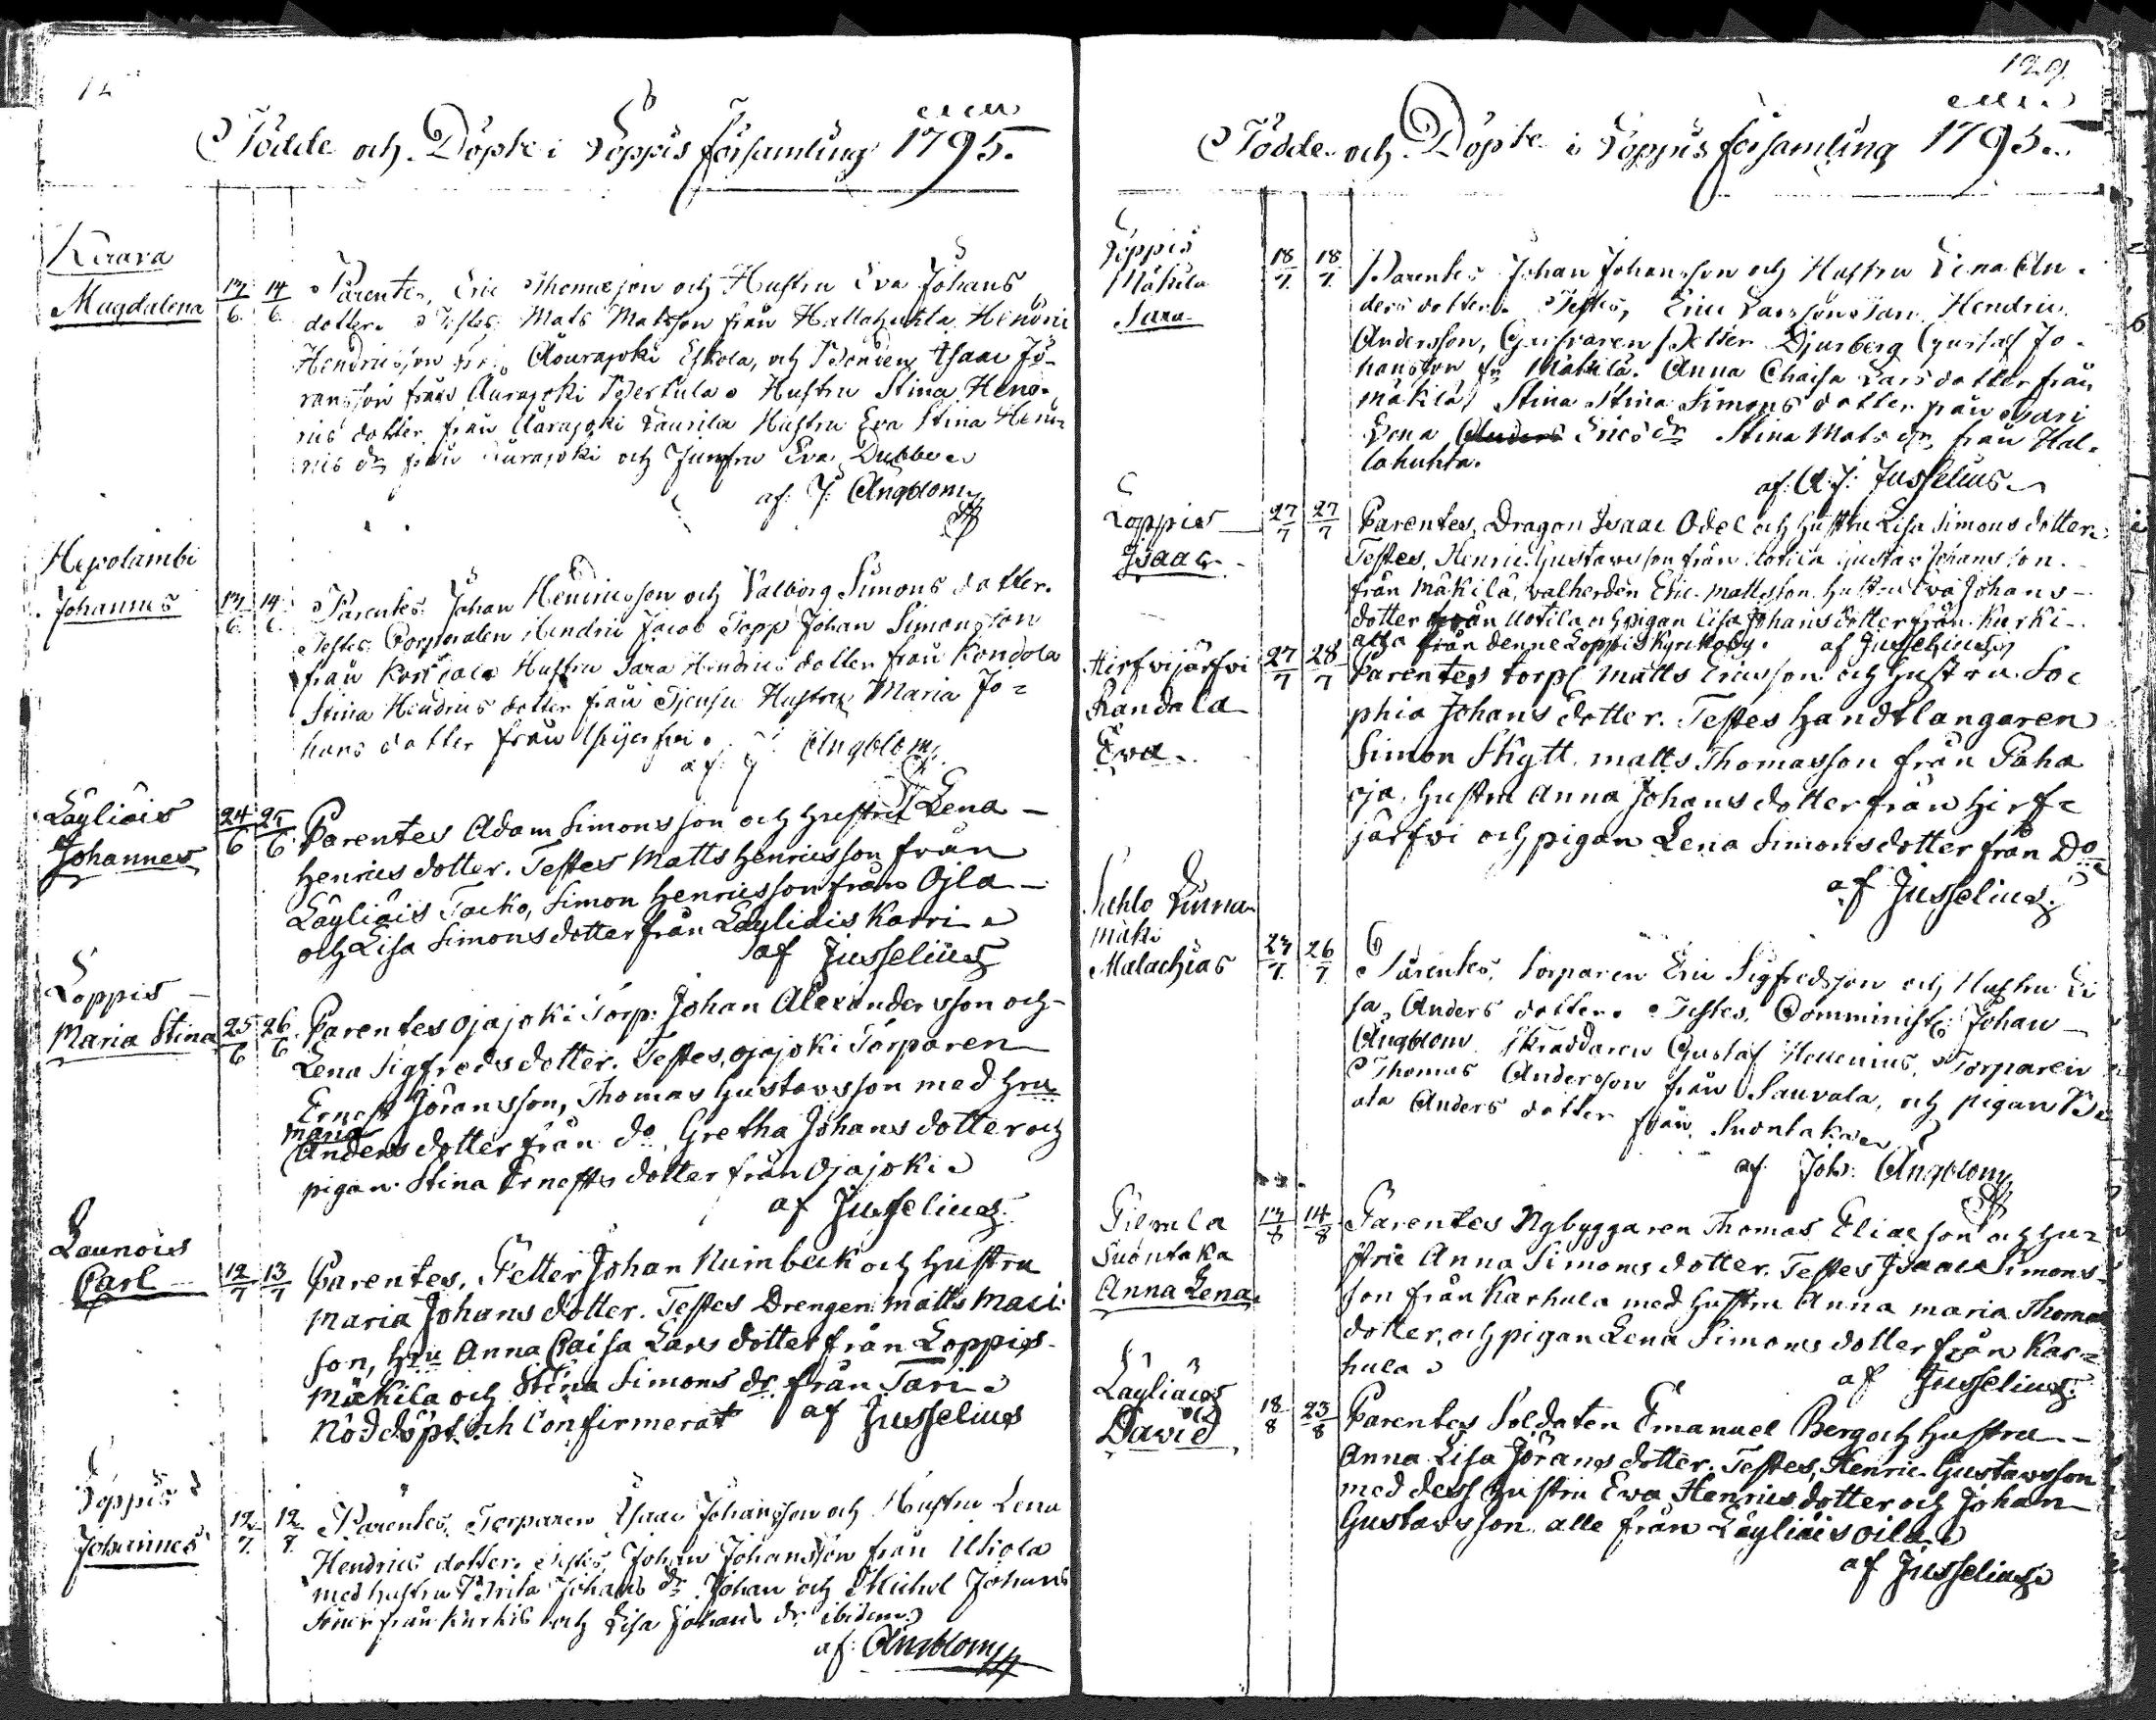 Födde och Döpte i Loppis församling 1795.
Kerava
Magdalena 13/6 14/6 Parentes, Eric Thomasson och Hustru Eva Johans
dotter. Testes Mats Matsson från Hallahuhta Hendric
Hendricsson från Aourajoki Eskola, och Bonden Isaac Jö-
ransson från Aurajoki Perttula. Hustru Stina Hend-
rics dotter från Aurajoki Laurila Hustru Eva Stina Hend-
rics dr från Aurajoki och Jungfru Eva Dubbe
af: J: Ångblom
Hepolambi
Johannes 13/6 14/6 Parentes: Johan Hendricsson och Valborg Simons dotter.
Testes Corporalen Hendric Jacob Topp Johan Simonsson
från Hustru Sara Hendrics dotter från Kondola
Stina Hendrics dotter från Hustru Maria Jo-
hans dotter från
af: J: Ångblom
Läyliäis
Johannes 24/6 25/6 Parentes Adam Simonsson och hustru Lena
Henrics dotter. Testes Matts Henricsson från
Läyliäis Tacko, Simon Henricsson från Ojla
och Lisa Simonsdotter från Läyliäis Karri
af Jusselius
Loppis
Maria Stina 25/6 26/6 Parentes Ojajoki Torp: Johan Alexandersson och
Lena Sigfreds dotter. Testes, Ojajoki Torparen
Ernest Jöransson, Thomas Gustavsson med hru
Maria
Anders dotter från do, Gretha Johans dotter och
pigan Stina Ernests dotter från Ojajoki
af Jusselius
Launois
Carl 12/7 13/7 Parentes, Johan Numbeck och hustru
Maria Johans dotter. Testes Drengen Matts Maci-
son, hru Anna Caisa Lars dotter från Loppis
Mäkilä och Stina Simons dr från Sari
Nöddöpt och Confirmerat af Jusselius
Loppis
Johannes 12/7 12/7 Parentes, Torparen Isaac Johansson och Hustru Lena
Hendrics dotter. Testes Johan Johansson från Uhiola
med hustru Brita Johans dr Johan och Michel Johans
Söner från Kurkis och Lisa Johans dr ibidem
af: Ångblom
129
Födde och Döpte i Loppis församling 1795.
Loppis
Mäkilä
Sara 18/7 18/7 Parentes Johan Johansson och Hustru Lena An-
ders dotter. Testes, Eric Larsson Sari Hendric
Andersson, Garfvaren Petter Djurberg Gustaf Jo-
hansson fr Mäkilä. Anna Chaisa Lars dotter från
Mäkilä, Stina Stina Simons dotter från Sari
Lena Anders Erics dr Stina Mats dr från Hal-
lahuhta.
af: A: J: Jusselius
Loppis
Isaac 27/7 27/7 Parentes, Dragon Isaac Odel och hustru Lisa Simons dotter.
Testes, Henric Gustavsson från Gustav Johansson
från Mäkilä, valherden Eric Mattsson hustru Eva Johans
dotter från Uotila och pigan Lisa Johans dotter från Kurki
alla från denne Loppis Kyrkoby. af Jusselius
Hirfvijärfvi
Randala
Eva 27/7 28/7 Parentes torp: Matts Ericsson och hustru So
phia Johans dotter. Testes handtlangaren
Simon Skytt, Matts Thomasson från Paha
oja, hustru Anna Johans dotter från Hirf-
järfvi och pigan Lena Simonsdotter från Do
af Jusselius
Suhlo Linna
mäki
Malachias 23/7 26/7 Parentes, Torparen Eric Sigfredsson och Hustru Li
sa Anders dotter. Testes, Comminist: Johan
Ångblom Skräddaren Gustaf Hellenius, Torparen
Thomas Andersson från Sauvala, och pigan Be
ata Anders dotter från Suontaka
af Joh: Ångblom
Pilpala
Suontaka
Anna Lena 13/8 14/8 Parentes Nybyggaren Thomas Eliasson och hu-
stru Anna Simons dotter. Testes Isaac Simons-
son från Karhula med hustru Anna Maria Thomas
dotter, och pigan Lena Simons dotter från Kar-
hula
af Jusselius
Läyliäis
David 18/8 23/8 Parentes Soldaten Emanuel Berg och hustru
Anna Lisa Jörans dotter. Testes, Henric Gustavsson
med dess hustru Eva Henrics dotter och Johan
Gustavsson alle från Läyliäis oila
af Jusselius